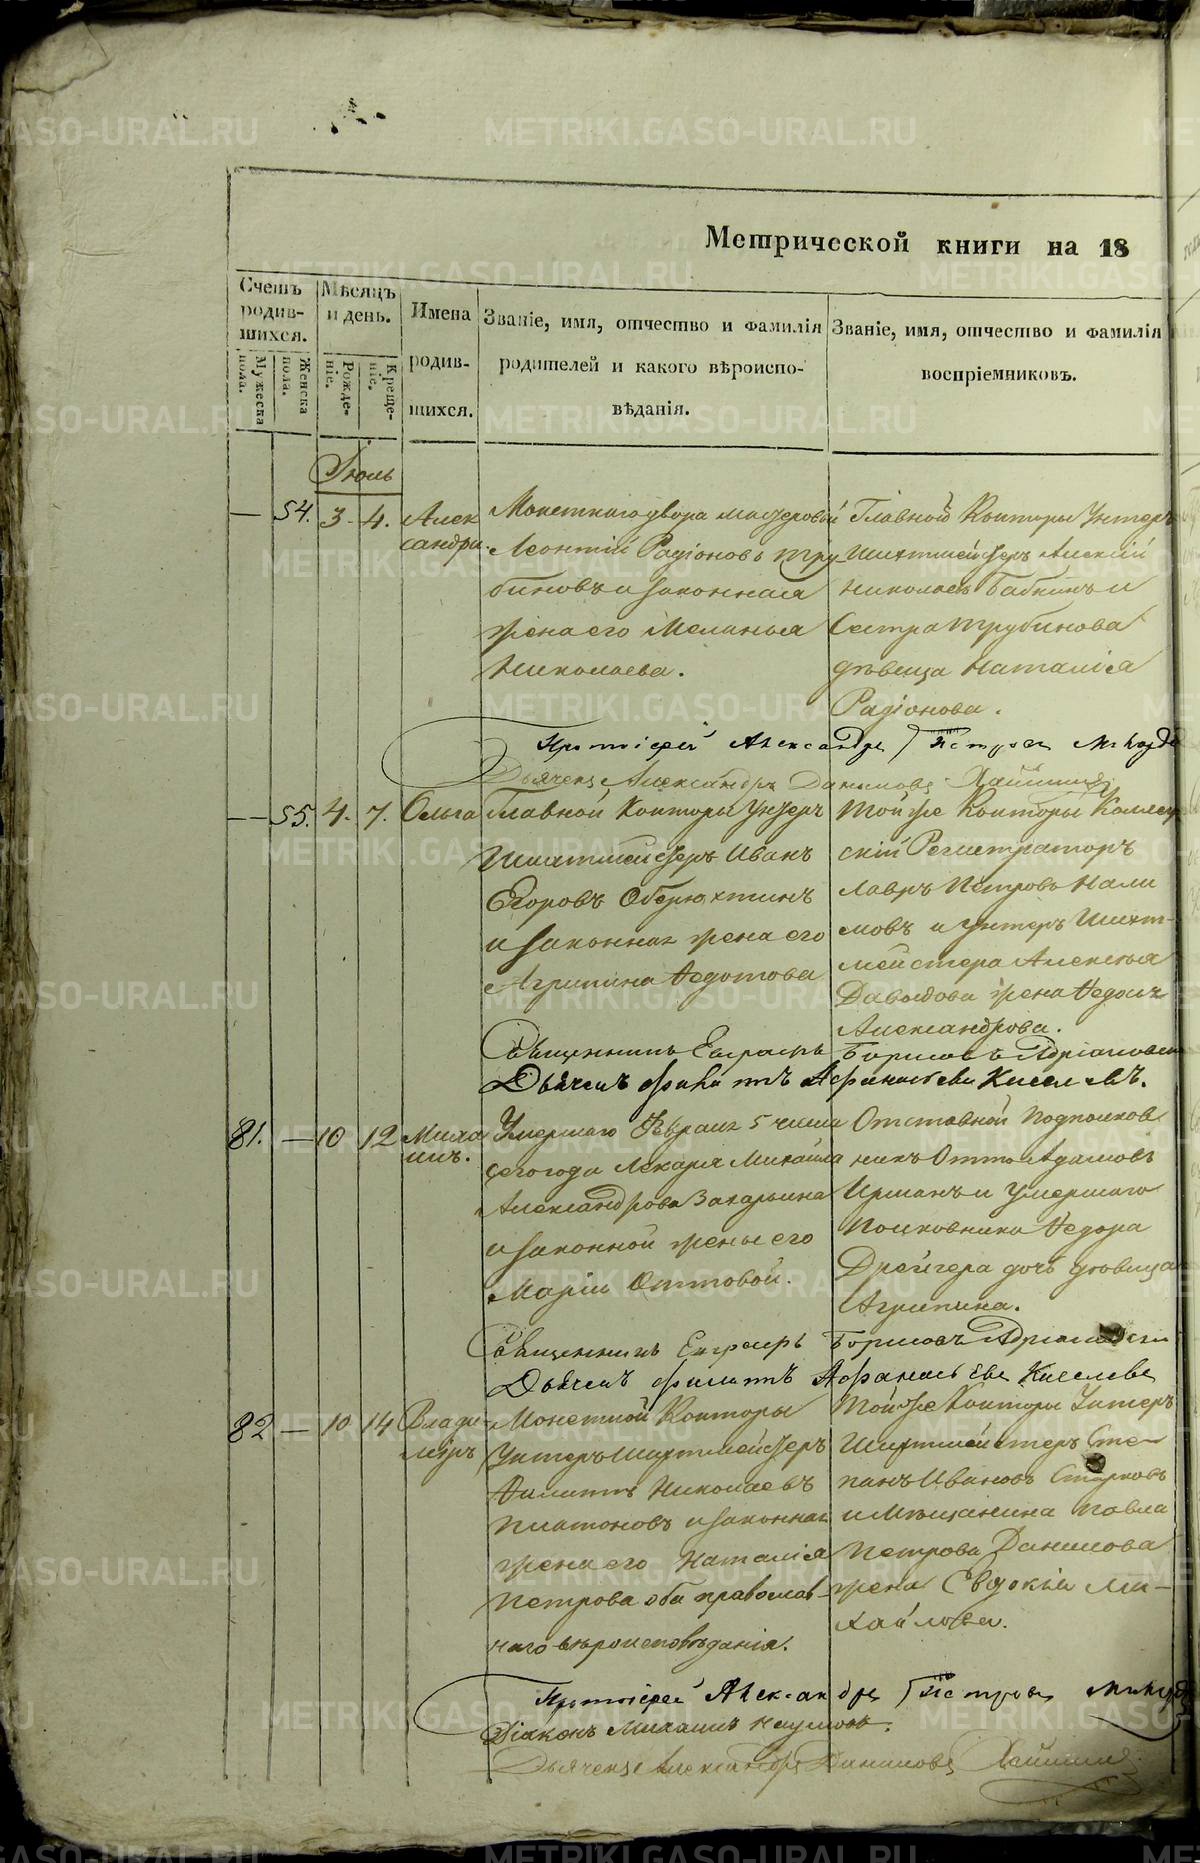 Метрической книги на 18
Счетъ родив-
шихся.
Мужеска пола.
Женска пола.
Мѣсяцъ и день.
Рожде-
ніе.
Креще-
ніе.
Имена
родив-
шихся.
Званіе, имя, отчество и фамилія
родителей и какого вѣроиспо-
вѣданія.
Званіе, имя, отчество и фамилія
воспріемниковъ.
Іюль
— 54. 3. 4.
Алек
сандра.
Монетнаго двора мастеровой
Леонтій Радіоновъ Тру-
биновъ и законная
жена его Меланья
Николаева.
Главной Конторы Унтеръ
Шихтмейстеръ Алексій
Николаевъ Бабкинъ и
Сестра Трубинова
дѣвица Наталія
Радіонова.
Протоіерей Александръ Петровъ
Дьячекъ Александръ Даниловъ
— 55. 4. 7.
Ольга
Главной Конторы Унтеръ
Шихтмейстеръ Иванъ
Егоровъ Оберюхтинъ
и законная жена его
Агрипина Ѳедотова
Той же Конторы Коллеж
скій Регистраторъ
Лавръ Петровъ Нали
мовъ и унтеръ Шихт-
мейстера Алексѣя
Давыдова жена Ѳедосья
Александрова.
Священникъ Евграфъ Борисовъ Адріановскій
Дьячекъ Филиппъ Афанасьевъ Киселевъ.
81. — 10 12
Миха
илъ.
Умершаго Февраля 5 числа
сего года Лекаря Михайла
Александрова Захарьина
и законной жены его
Маріи Оттовой.
Отставной Подполков
никъ Отто Адамовъ
Ирманъ и умершаго
Полковника Ѳедора
Дрейгера дочь дѣвица
Агрипина.
Священникъ Евграфъ Борисовъ Адріановскій
Дьячекъ Филиппъ Афанасьевъ Киселевъ
82 — 10 14
Влади-
міръ
Монетной Конторы
Унтеръ Шихтмейстеръ
Филиппъ Николаевъ
Платоновъ и законная
жена его Наталія
Петрова оба православ-
наго вѣроисповѣданія.
Той же Конторы Унтеръ
Шихтмейстеръ Сте-
панъ Ивановъ Старковъ
и Мѣщанина Павла
Петрова Данилова
жена Евдокія Ми-
хайлова.
Протоіерей Александръ Петровъ
Діаконъ Михаилъ Наумовъ.
Дьячекъ Александръ Даниловъ
METRIKI.GASO-URAL.RU